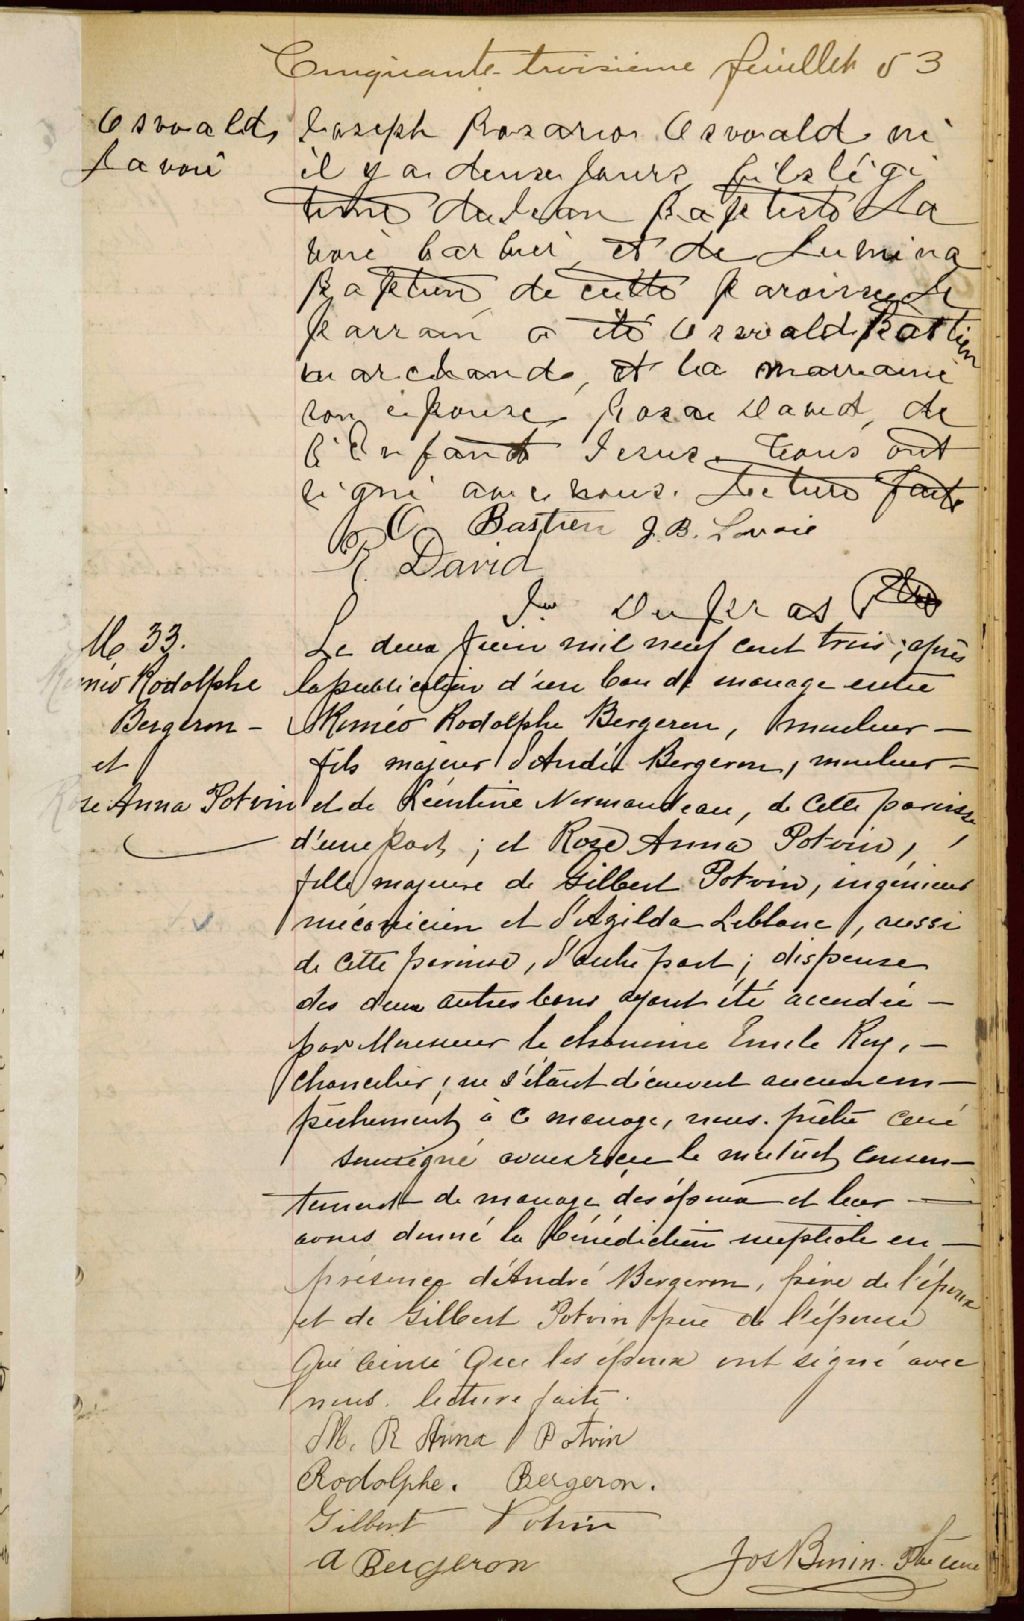 Cinquante-troisième feuillet 53
Oswald
Lavoie
Joseph Rosario Oswald né
il y a deux jours, fils légi
time de Jean Baptiste La
voie barbier, et de Lumina
Bastien de cette paroisse Le
parrain a été Oswald Bastien
marchand, et la marraine
son épouse Rosa David, de
l'Enfant Jesus. Tous ont
signé avec nous. Lecture faite
O Bastien J. B. Lavoie
R. David
Dufras Ptre
M 33.
Roméo Rodolphe
Bergeron -
et
Rose Anna Potvin
Le deux juin mil neuf cent trois ; après
la publication d'un ban de mariage entre
Roméo Rodolphe Bergeron, mouleur —
fils majeur d'André Bergeron, mouleur —
et de Léontine Normandeau, de cette paroisse
d'une part ; et Rose Anna Potvin,
fille majeure de Gilbert Potvin, ingénieur
mécanicien et d'Agilda Leblanc, aussi
de cette paroisse, d'autre part ; dispense
des deux autres bans ayant été accordée —
par Monsieur le chanoine Emile Roy, —
chancelier ; ne s'étant découvert aucun em —
pêchement à ce mariage, nous, prêtre curé
soussigné avons reçu le mutuel consen —
tement de mariage des époux et leur —
avons donné la bénédiction nuptiale en —
présence d'André Bergeron, père de l'époux
et de Gilbert Potvin père de l'épouse
qui ainsi que les époux ont signé avec
nous. lecture faite.
M. R Anna Potvin
Rodolphe. Bergeron.
Gilbert Potvin
A Bergeron
Jos Bonin. Ptre curé